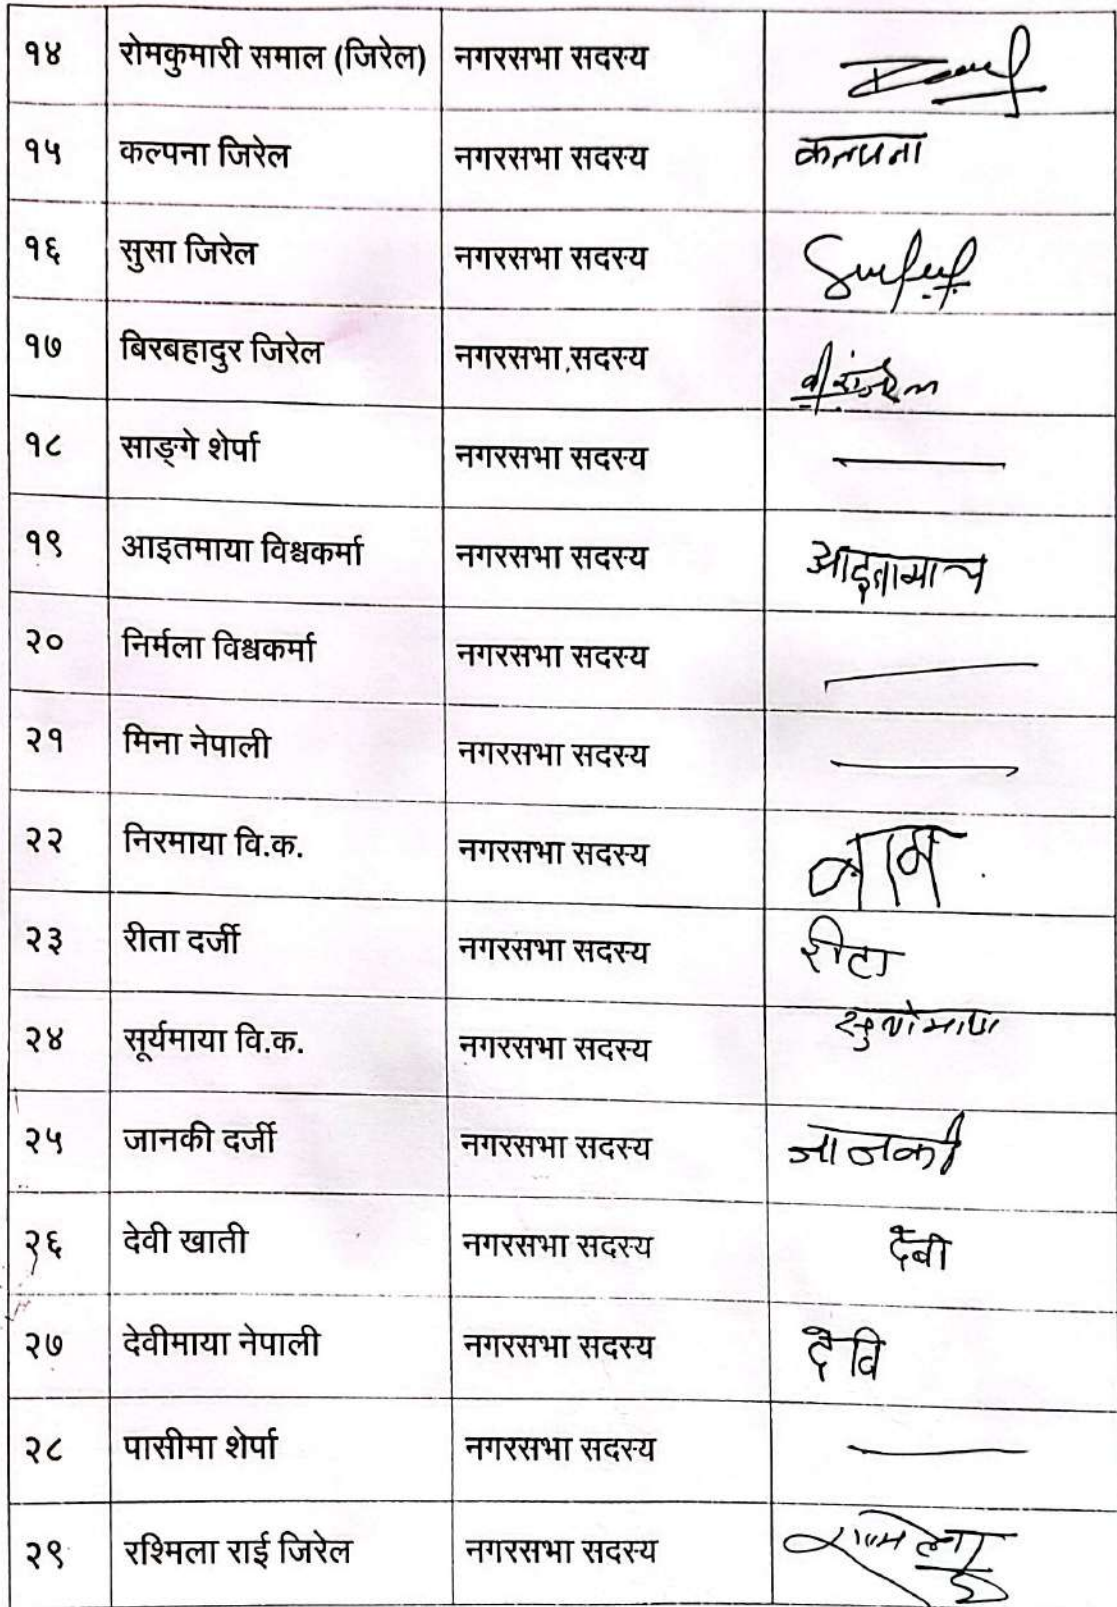 १४ रोमकुमारी समाल (जिरेल) नगरसभा सदस्य
१५ कल्पना जिरेल नगरसभा सदस्य कल्पना
१६ सुसा जिरेल नगरसभा सदस्य
१७ बिरबहादुर जिरेल नगरसभा सदस्य
१८ साङ्गे शेर्पा नगरसभा सदस्य
१९ आइतमाया विश्वकर्मा नगरसभा सदस्य
२० निर्मला विश्वकर्मा नगरसभा सदस्य
२१ मिना नेपाली नगरसभा सदस्य
२२ निरमाया वि.क. नगरसभा सदस्य
२३ रीता दर्जी नगरसभा सदस्य रीटा
२४ सूर्यमाया वि.क. नगरसभा सदस्य
२५ जानकी दर्जी नगरसभा सदस्य जानकी
२६ देवी खाती नगरसभा सदस्य देवी
२७ देवीमाया नेपाली नगरसभा सदस्य देवि
२८ पासीमा शेर्पा नगरसभा सदस्य
२९ रश्मिला राई जिरेल नगरसभा सदस्य